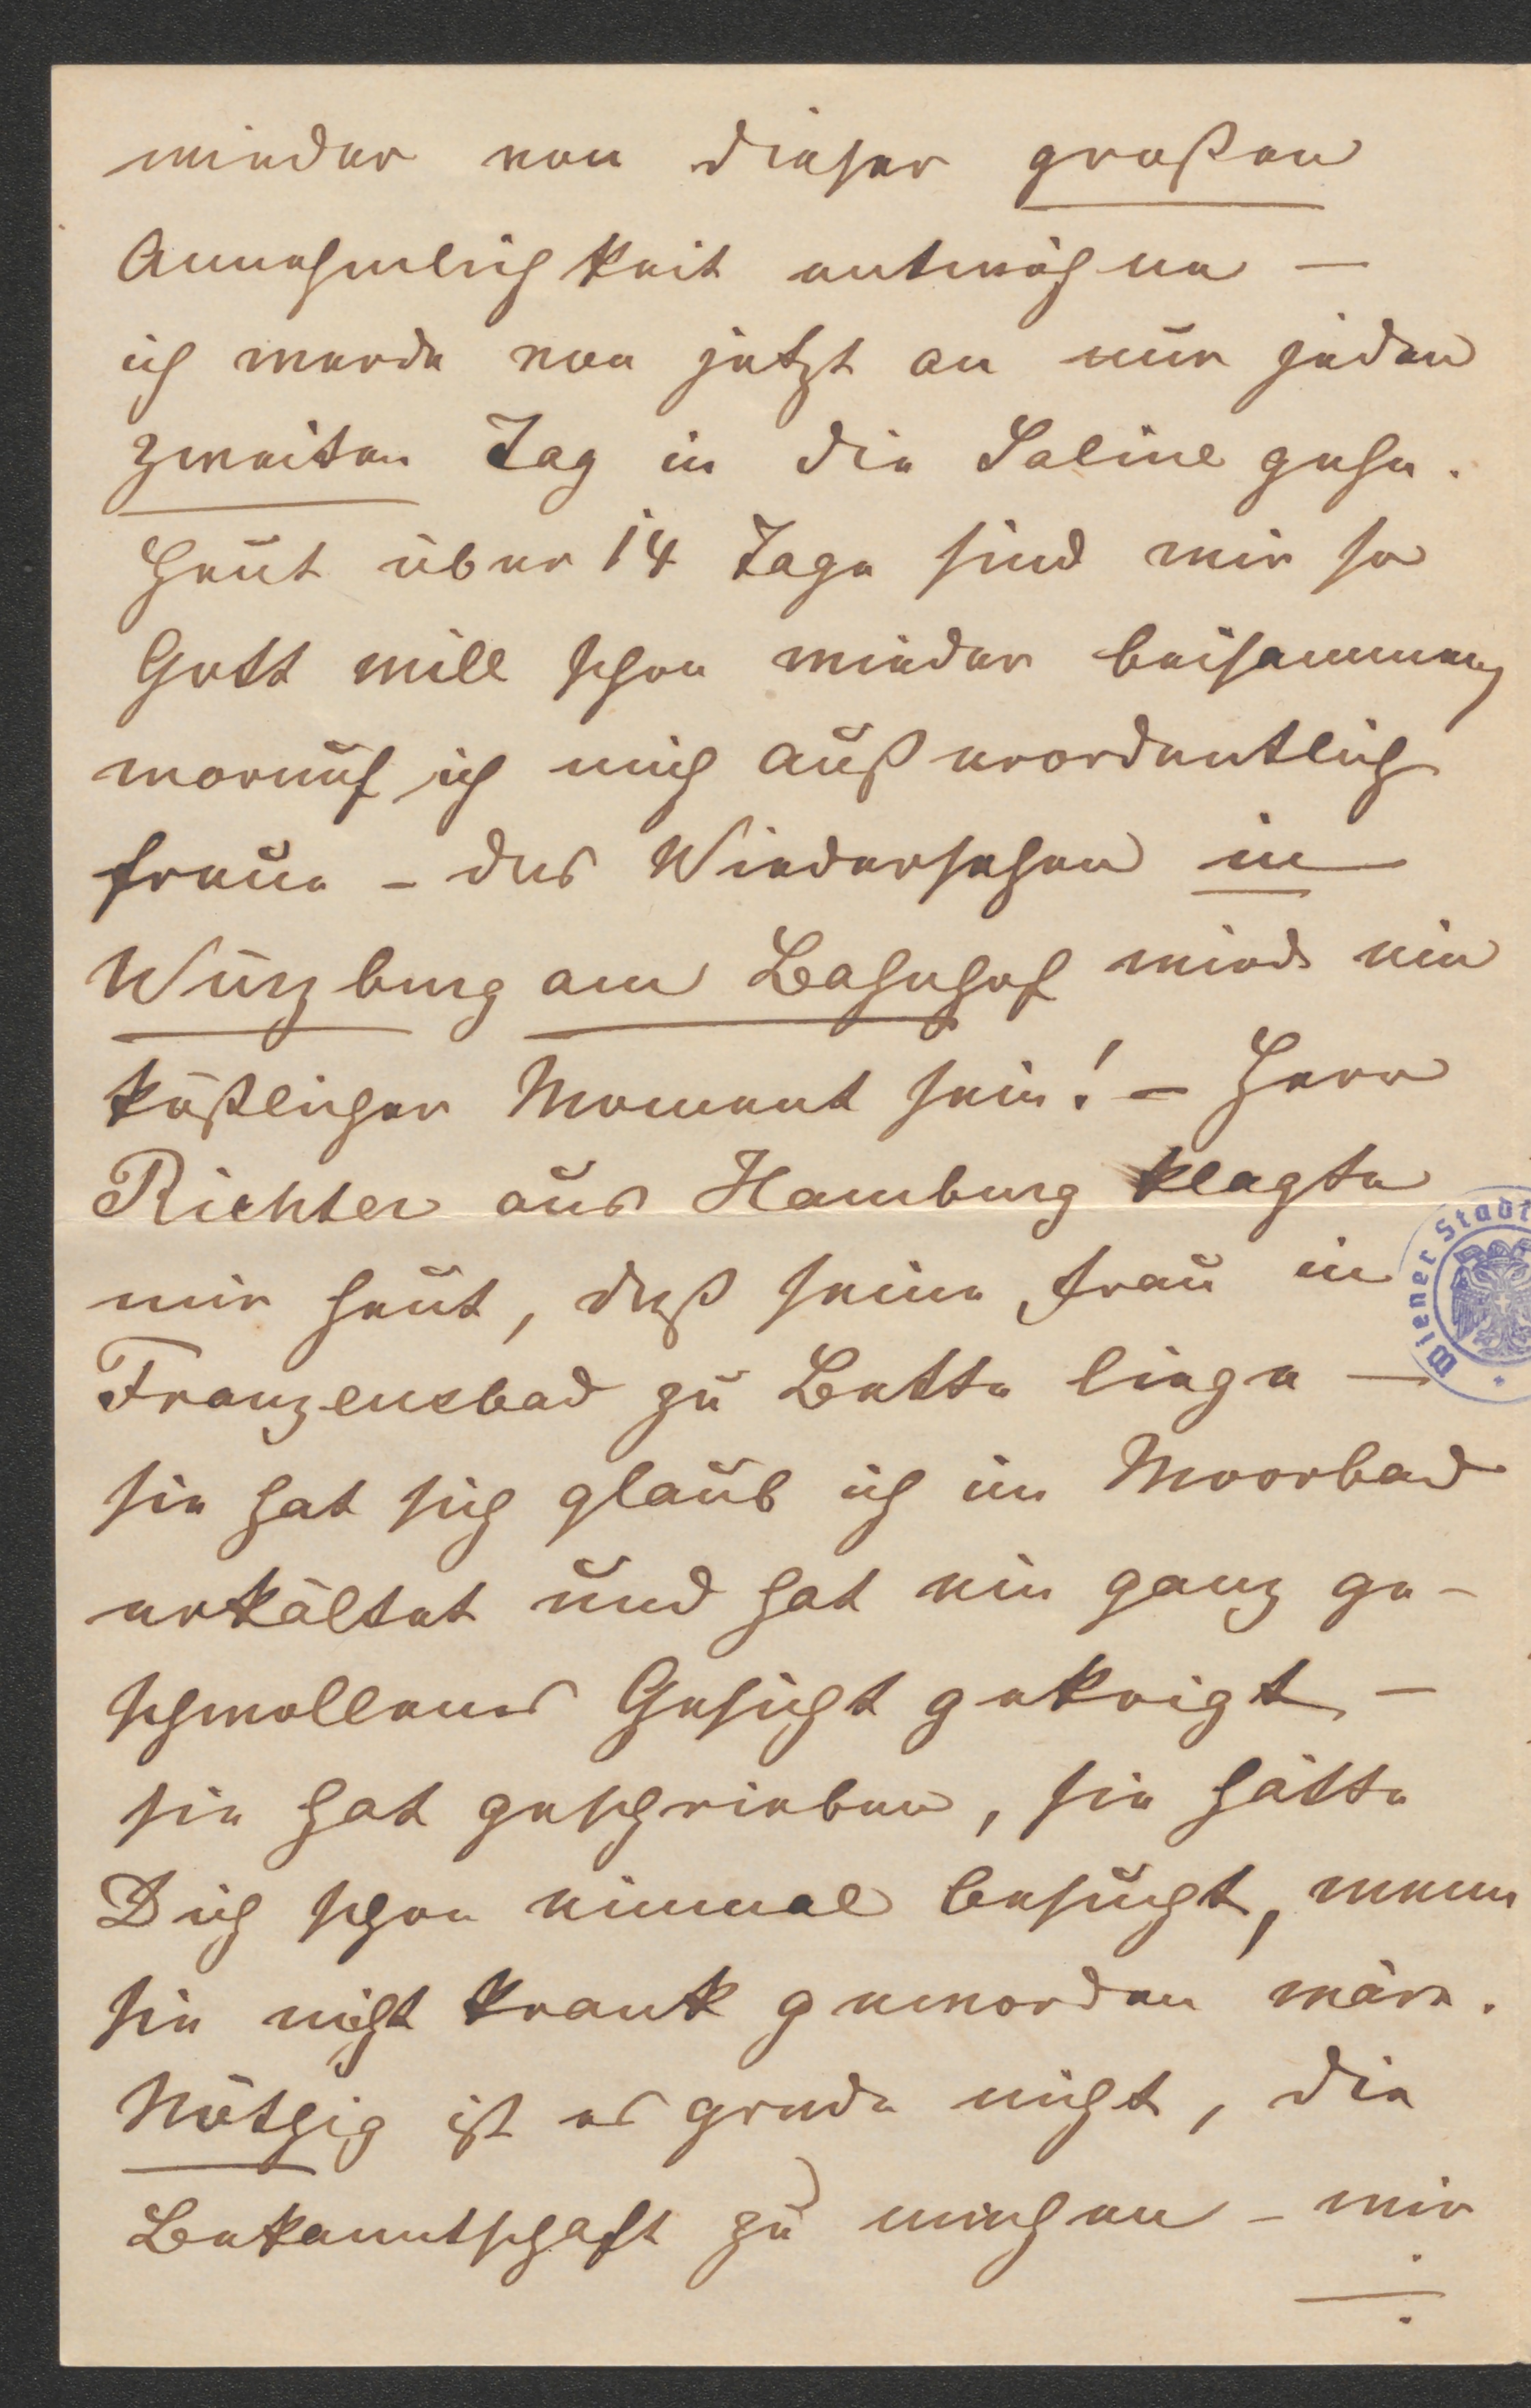 wieder von dieser großen
Annehmlichkeit entwöhne —
ich werde von jetzt an nur jeden
zweiten Tag in die Saline gehn.
Heut über 14 Tage sind wir so
Gott will schon wieder beisammen,
worauf ich mich außerordentlich
freue – das Wiedersehen in
Würzburg am Bahnhof wird ein
köstlicher Moment sein! – Herr
Richter aus Hamburg klagte
mir heut, daß seine Frau in
Franzensbad zu Bette liege —
sie hat sich glaub ich im Moorbad
erkältet und hat ein ganz ge-
schwollenes Gesicht gekrigt –
sie hat geschrieben, sie hätte
Dich schon einmal besucht, wenn
sie nicht krank geworden wäre.
Nöthig ist es grade nicht, die
Bekanntschaft zu machen – mir
Wiener Stadt